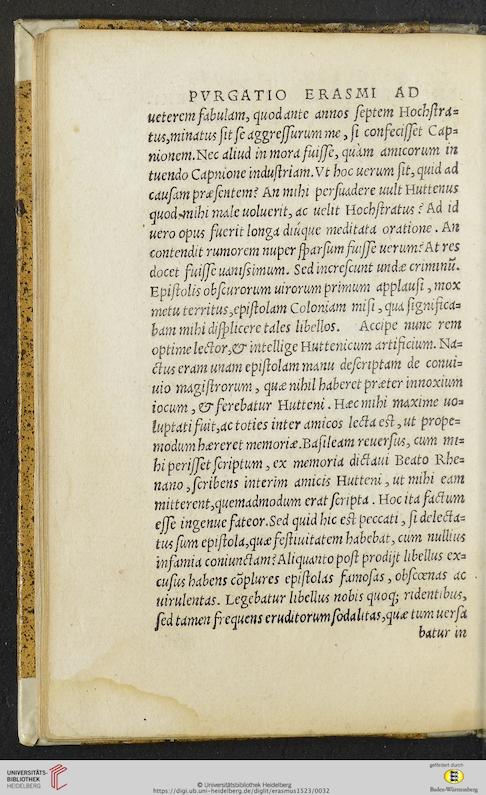 PVRGATIO ERASMI AD
ueterem fabulam, quod ante annos septem Hochstra=
tus, minatus sit se aggressurum me, si confecisset Cap=
nionem. Nec aliud in mora fuisse, quàm amicorum in
tuendo Capnione industriam. Vt hoc uerum sit, quid ad
causam præsentem? An mihi persuadere uult Huttenus
quod mihi male uoluerit, ac uelit Hochstratus? Ad id
uero opus fuerit longa diúque meditata oratione. An
contendit rumorem nuper sparsum fuisse uerum? At res
docet fuisse uanissimum. Sed increscunt undæ criminũ.
Epistolis obscurorum uirorum primum applausi, mox
metu territus, epistolam Coloniam misi, qua significa=
bam mihi displicere tales libellos. Accipe nunc rem
optime lector, & intellige Huttenicum artificium. Na=
ctus eram unam epistolam manu descriptam de conui=
uio magistrorum, quæ nihil haberet præter innoxium
iocum, & ferebatur Hutteni. Hæc mihi maxime uo=
luptati fuit, ac toties inter amicos lecta est, ut prope=
modum hæreret memoriæ. Basileam reuersus, cum mi=
hi perisset scriptum, ex memoria dictaui Beato Rhe=
nano, scribens interim amicis Hutteni, ut mihi eam
mitterent, quemadmodum erat scripta. Hoc ita factum
esse ingenue fateor. Sed quid hic est peccati, si delecta=
tus sum epistola, quæ festiuitatem habebat, cum nullius
infamia coniunctam? Aliquanto post prodijt libellus ex=
cusus habens cõplures epistolas famosas, obscœnas ac
uirulentas. Legebatur libellus nobis quoq; ridentibus,
sed tamen frequens eruditorum sodalitas, quæ tum uersa
batur in
UNIVERSITÄTS-
BIBLIOTHEK
HEIDELBERG
© Universitätsbibliothek Heidelberg
https://digi.ub.uni-heidelberg.de/diglit/erasmus1523/0032
gefördert durch
Baden-Württemberg